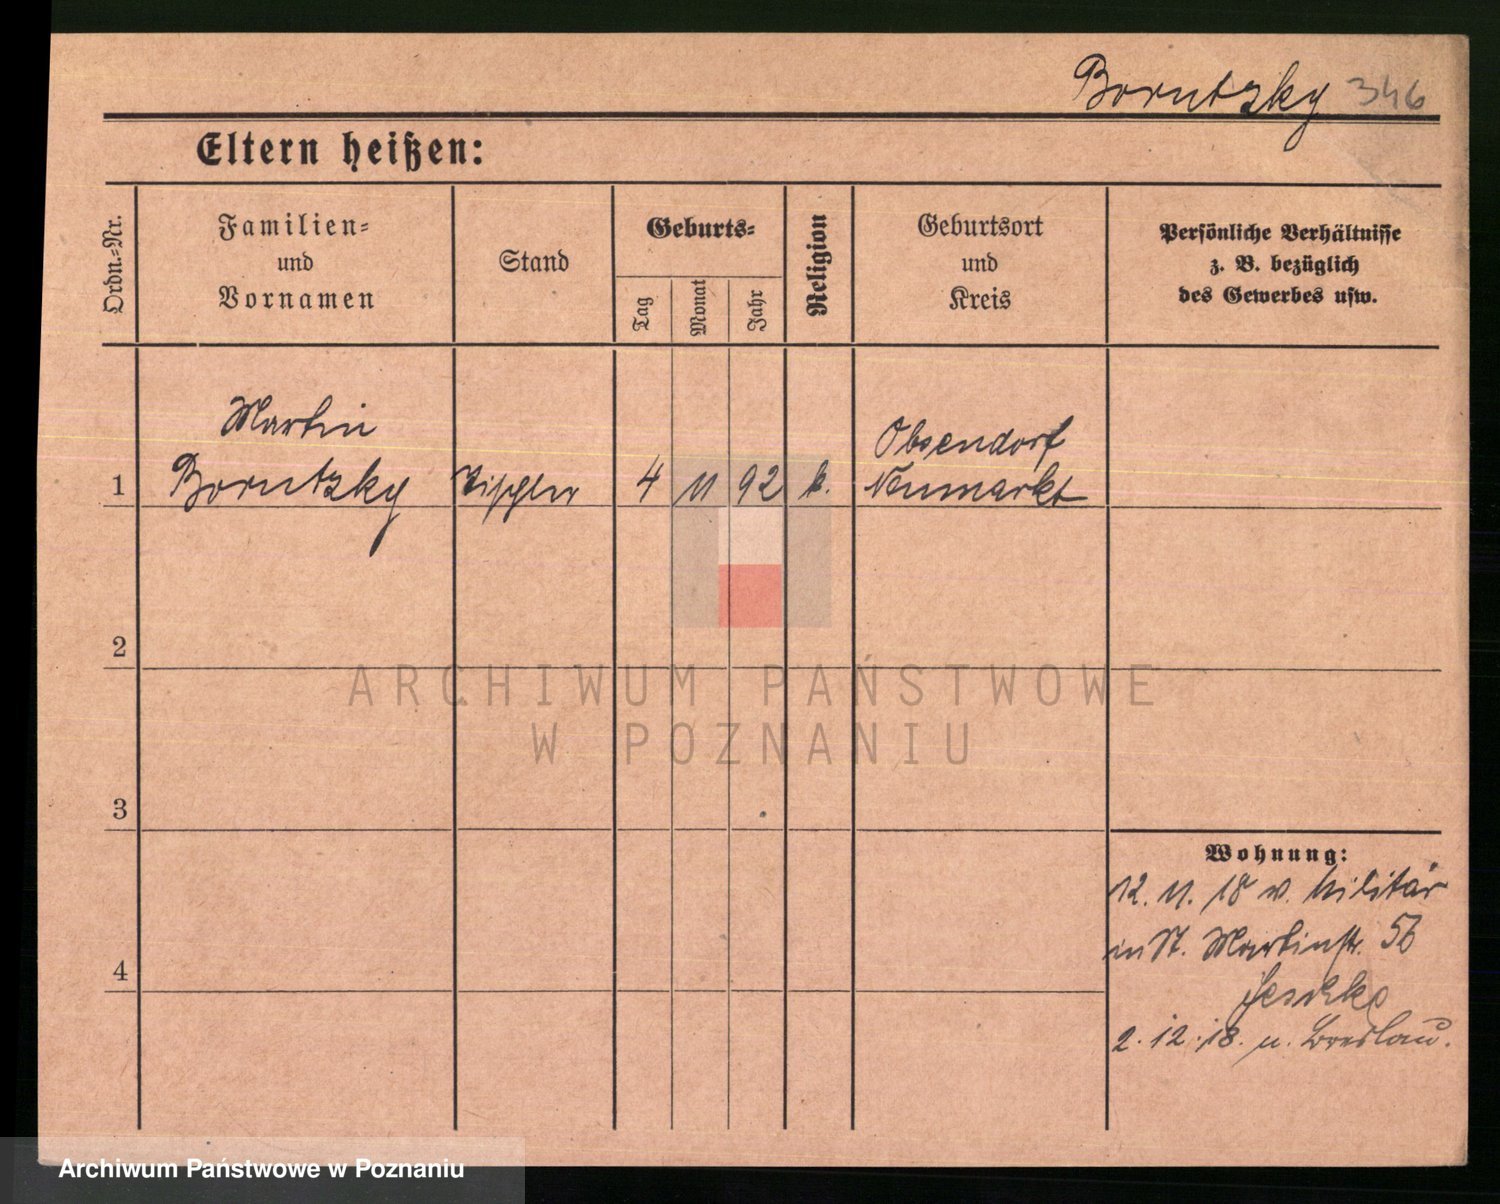 Borutzky 346
Eltern heißen:
Ordn.-Nr.
Familien-
und
Vornamen
Stand
Geburts-
Tag
Monat
Jahr
Religion
Geburtsort
und
Kreis
Persönliche Verhältnisse
z. B. bezüglich
des Gewerbes usw.
Martin
1 Borutzky Tischler 4 11 92 k.
Obsendorf
Neumarkt
2
ARCHIWUM PAŃSTWOWE
W POZNANIU
3
Wohnung:
12. 11. 18 v. Militär
in St. Martinstr. 56
4
2. 12. 18. n. Breslau.
Archiwum Państwowe w Poznaniu